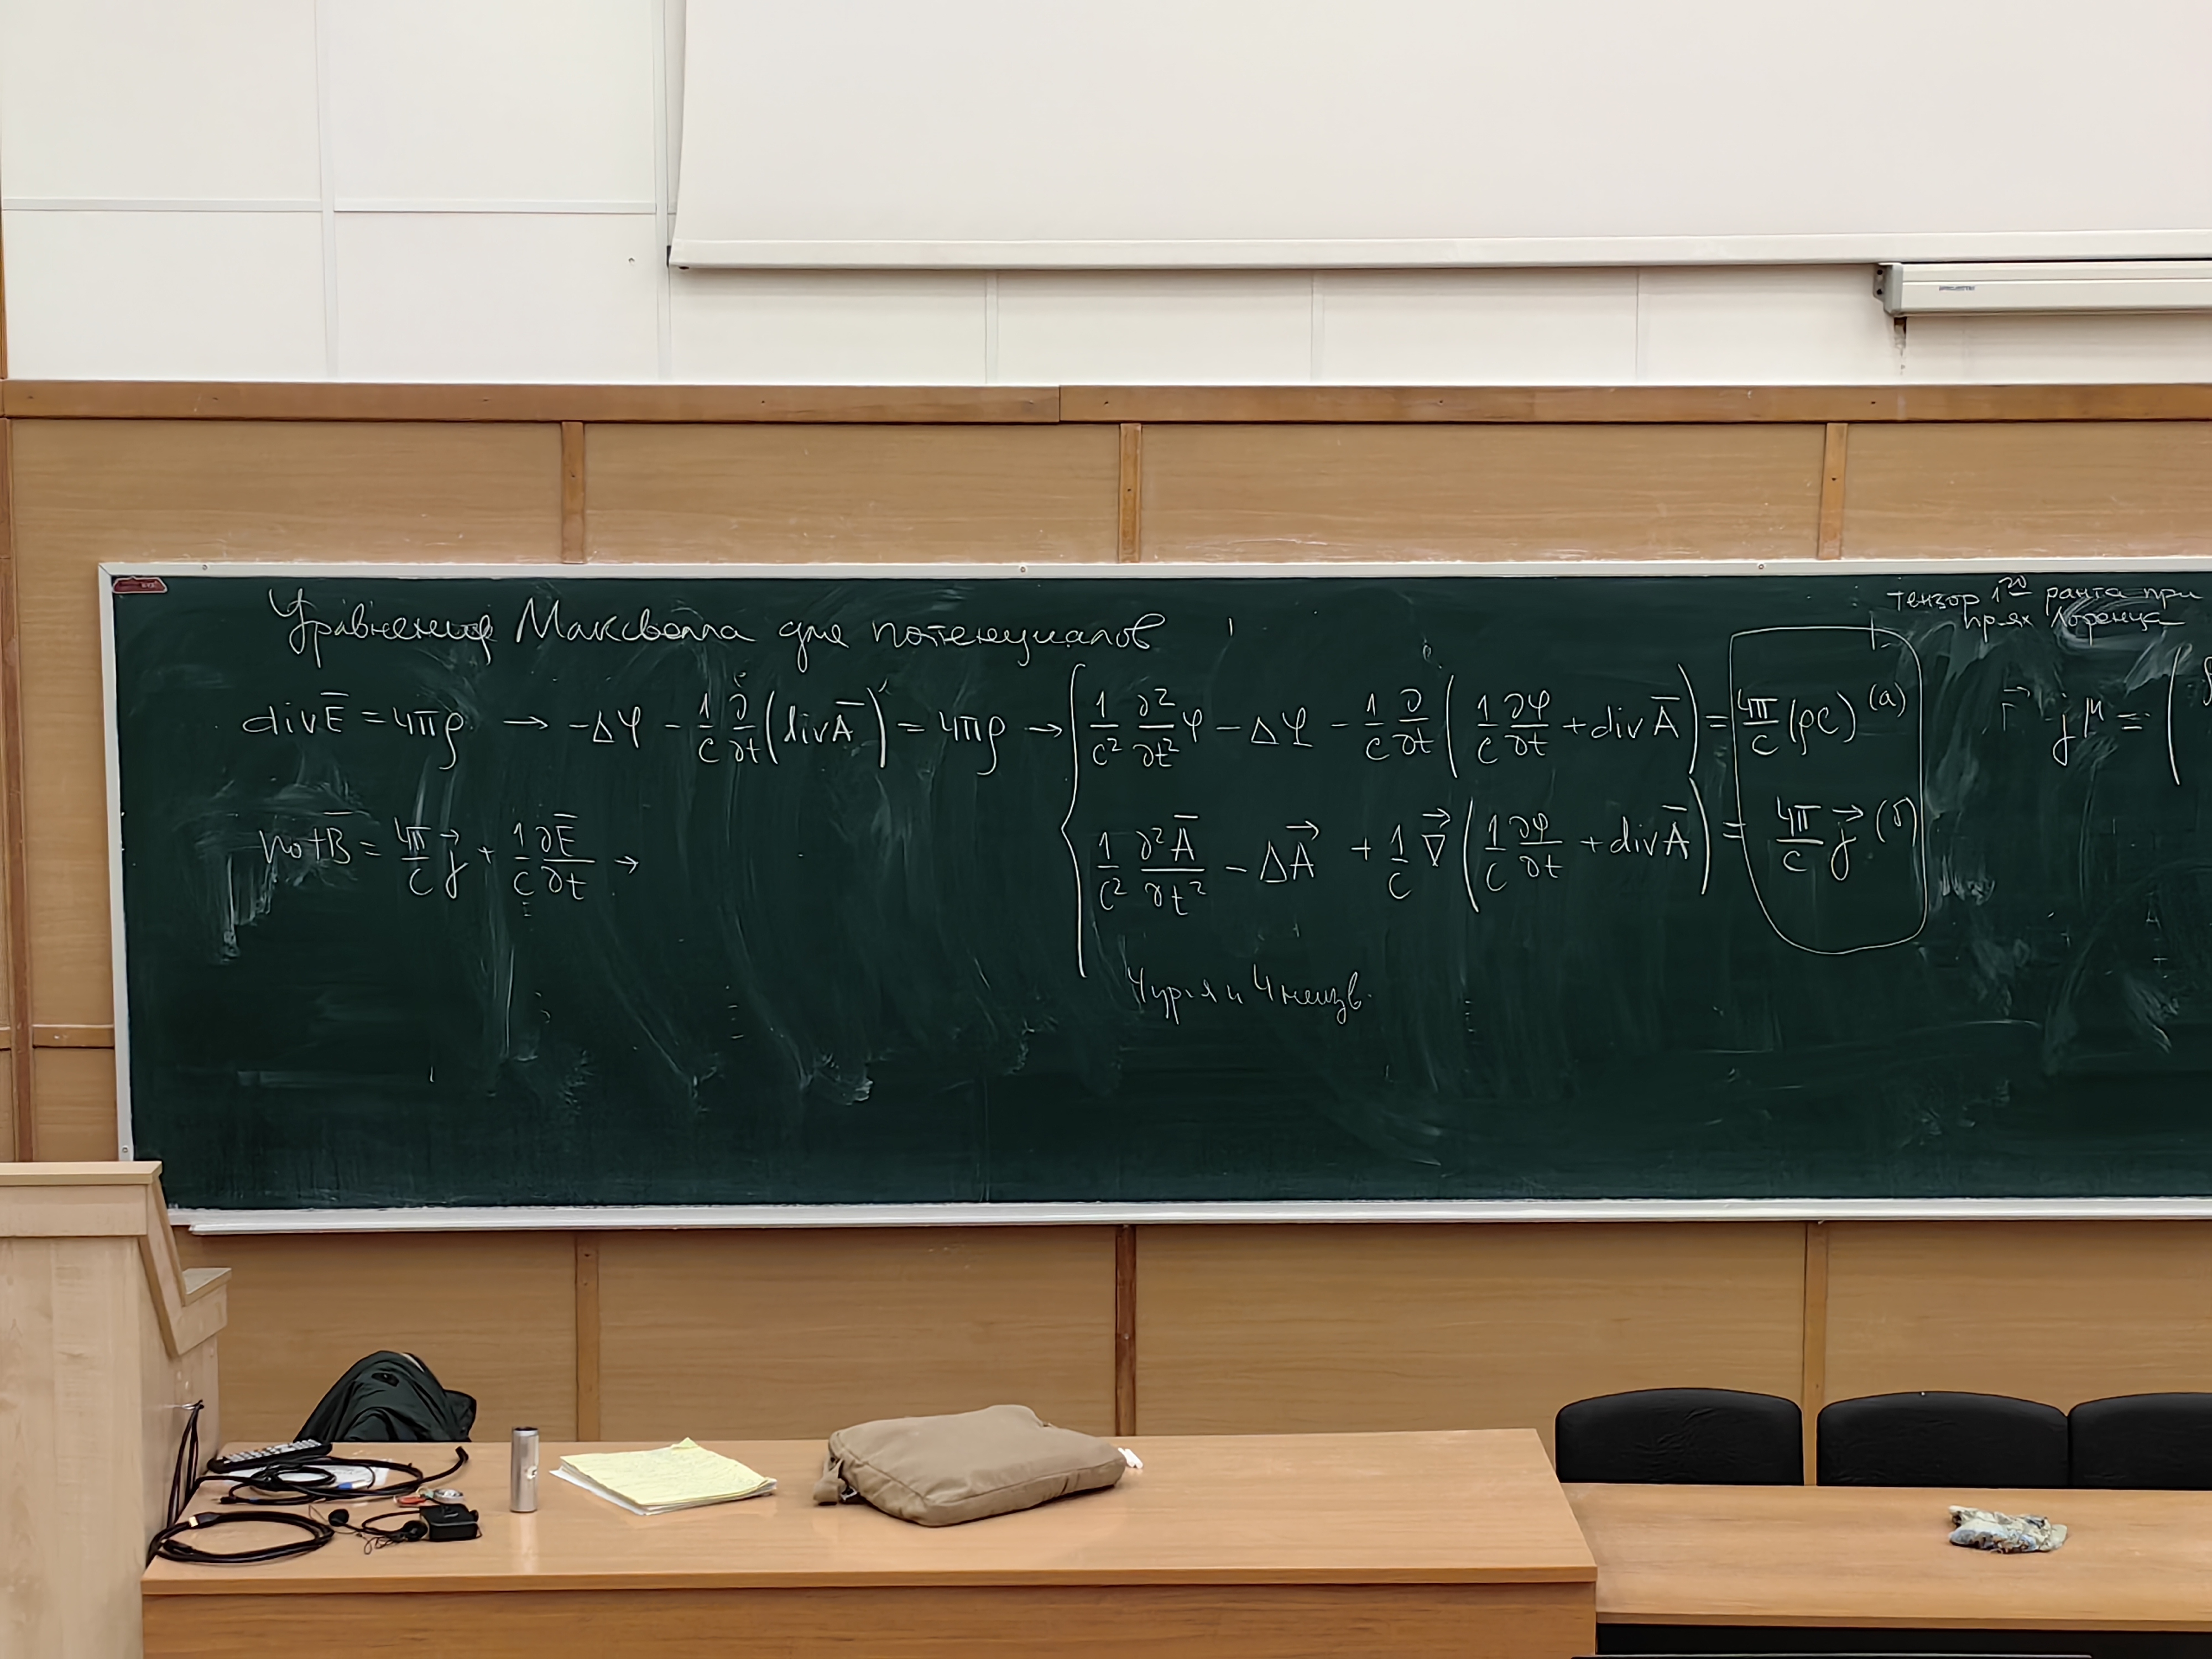 Уравнения Максвелла для потенциалов
div E̅ = 4πρ → −Δφ − 1/c ∂/∂t (div A̅) = 4πρ → { 1/c² ∂²/∂t² φ − Δφ − 1/c ∂/∂t (1/c ∂φ/∂t + div A̅) = 4π/c (ρc) (а)
rot B̅ = 4π/c j⃗ + 1/c ∂E̅/∂t →
1/c² ∂²A̅/∂t² − ΔA⃗ + 1/c ∇⃗ (1/c ∂φ/∂t + div A̅) = 4π/c j⃗ (б)
4 ур-я и 4 неизв.
тензор 1го ранга при
пр-ях Лоренца
j^μ = (